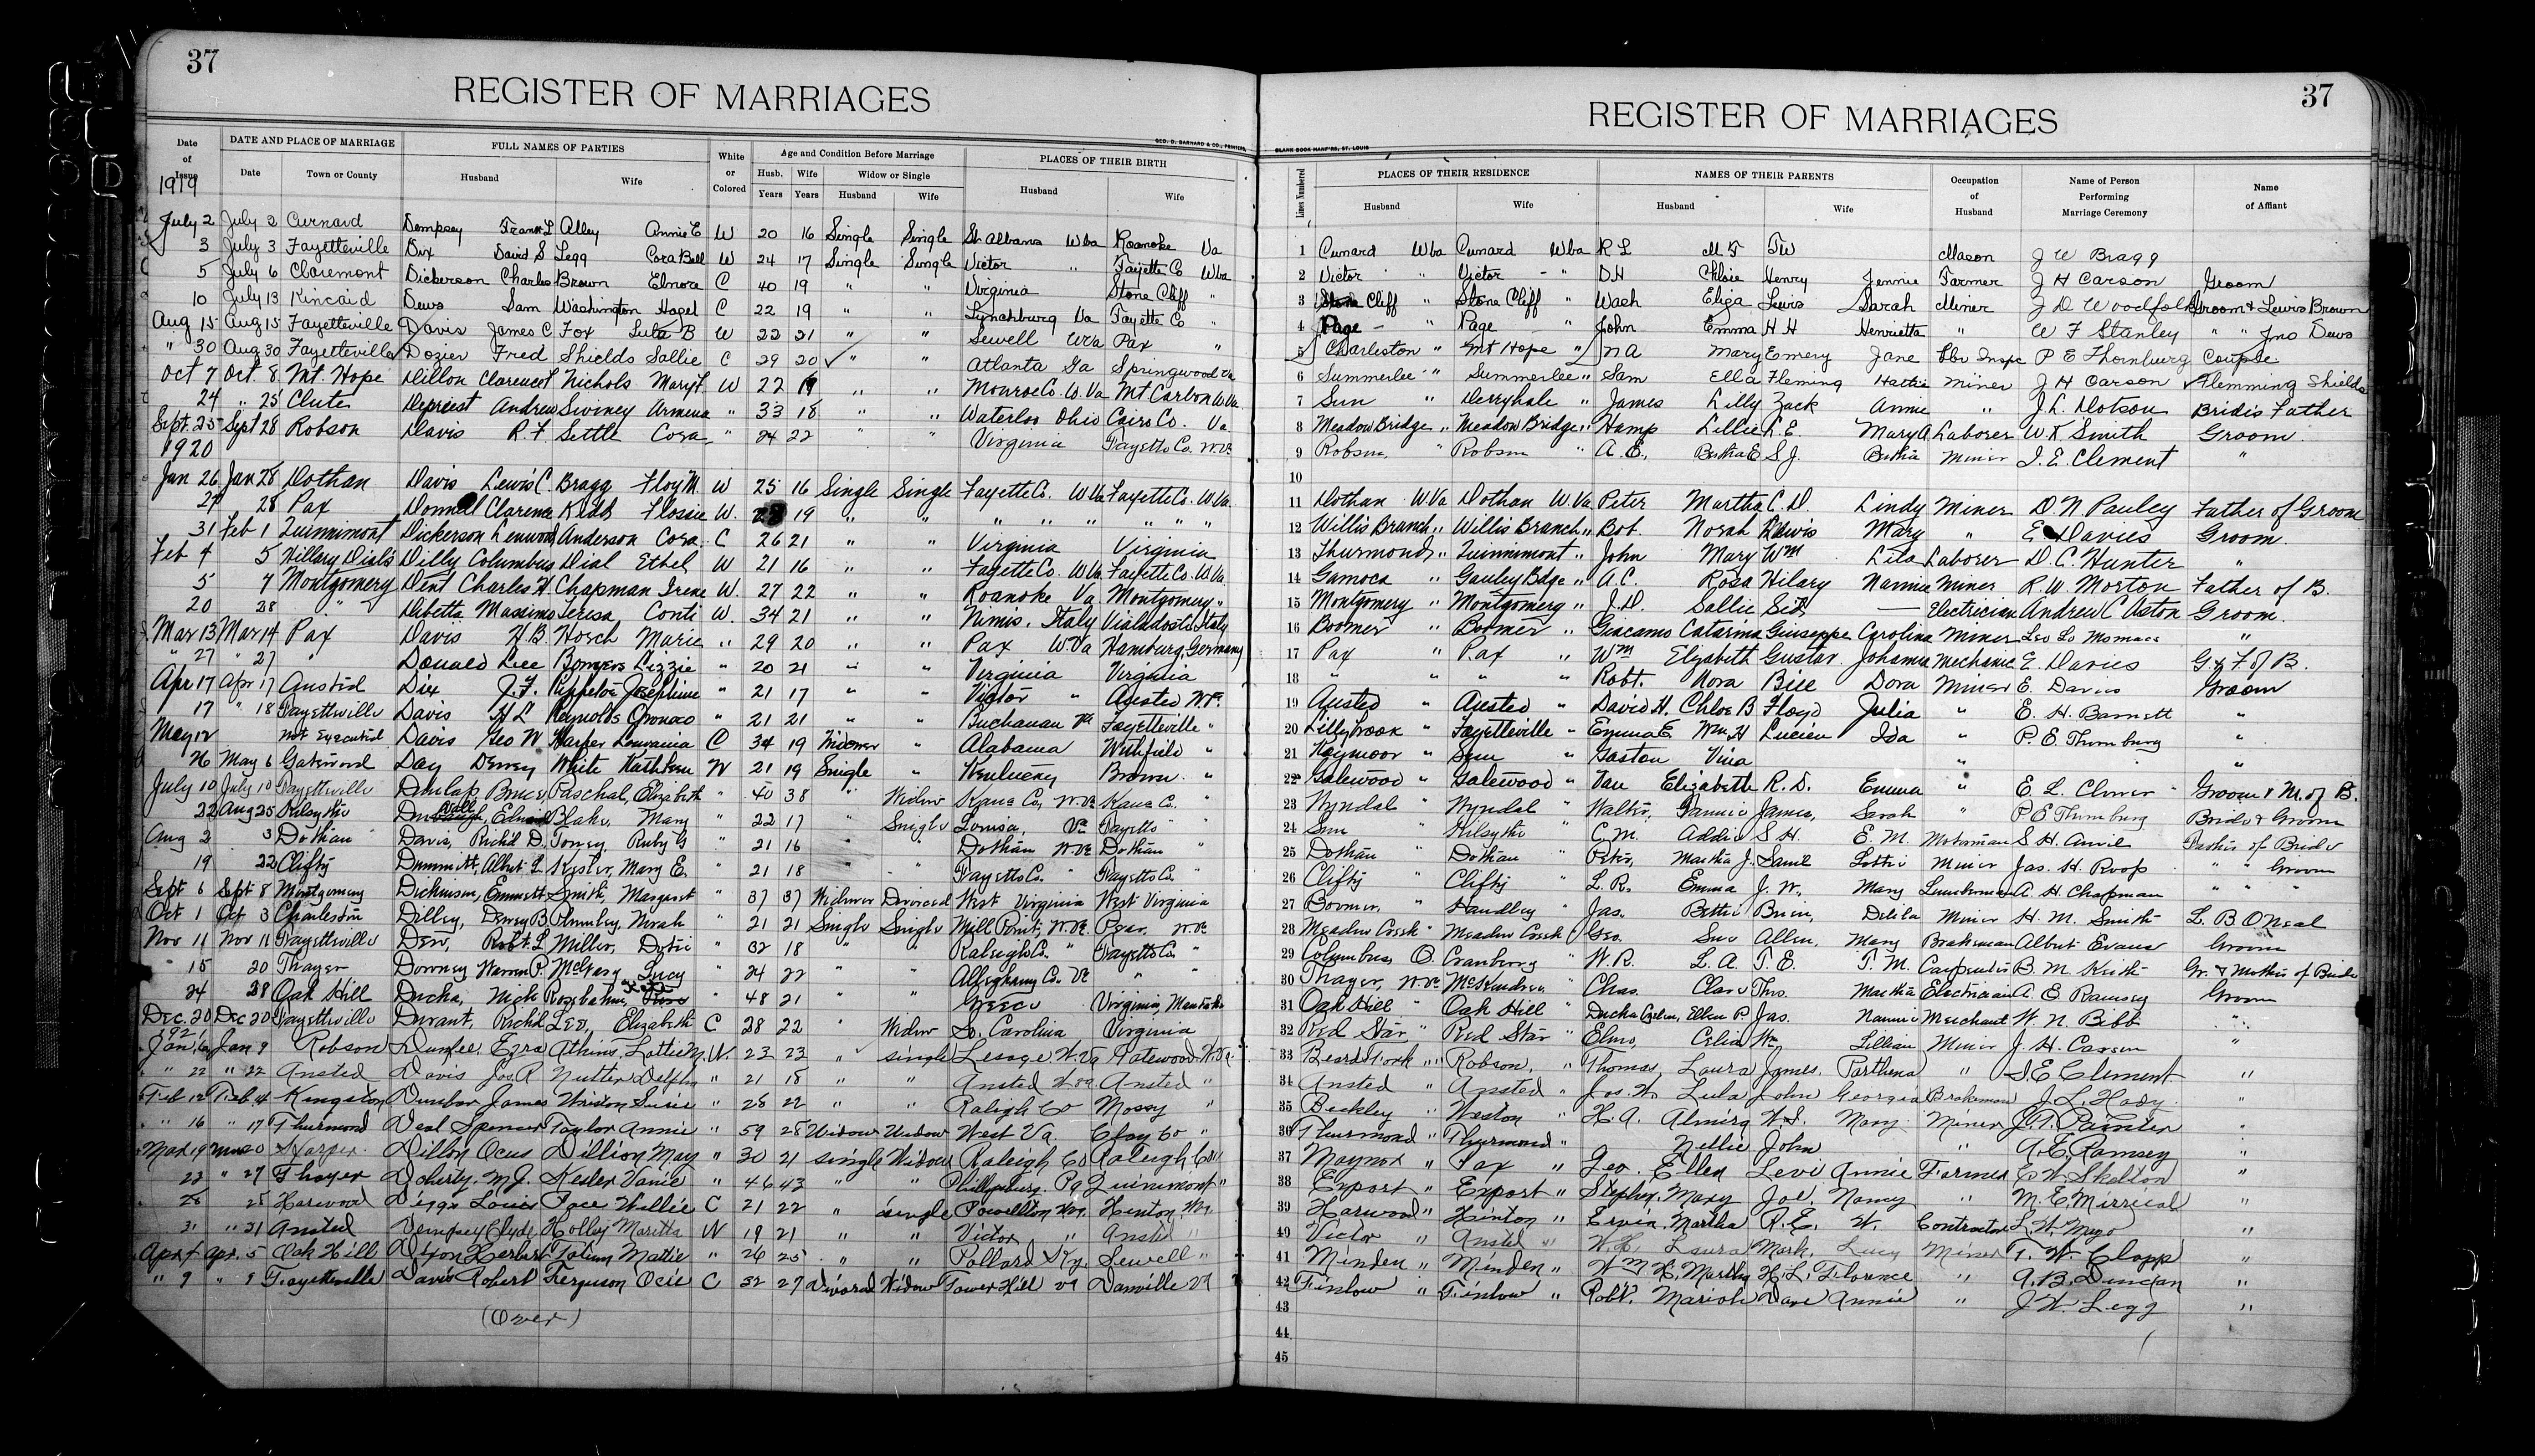 37
REGISTER OF MARRIAGES
GEO. D. BARNARD & CO., PRINTERS,
Date of Issue DATE AND PLACE OF MARRIAGE FULL NAMES OF PARTIES White or Colored Age and Condition Before Marriage PLACES OF THEIR BIRTH
Date Town or County Husband Wife Husb. Years Wife Years Widow or Single Husband Wife Husband Wife
1919
July 2 July 2 Cunard Dempsey Frank L Alley Annie E W 20 16 Single Single St Albans W Va Roanoke Va
3 July 3 Fayetteville Dix David S Legg Cora Bell W 24 17 Single Single Victor " Fayette Co W va
5 July 6 Claremont Dickerson Charles Brown Elnora C 40 19 " " Virginia Stone Cliff "
10 July 13 Kincaid Dews Sam Washington Hazel C 22 19 " " Lynchburg Va Fayette Co "
Aug 15 Aug 15 Fayetteville Davis James C Fox Lula B W 22 21 " " Sewell W Va Pax "
" 30 Aug 30 Fayetteville Dozier Fred Shields Sallie C 29 20 " " Atlanta Ga Springwood Va
Oct 7 Oct. 8 Mt. Hope Dillon Clarence L Nichols Mary F. W 22 19 " " Monroe Co. W. Va Mt Carbon W Va
24 " 25 Clute Depriest Andrew Siviney Armena " 33 18 " " Waterloo Ohio Cairo Co. Va
Sept. 25 Sept 28 Robson Davis R. F Settle Cora " 24 22 " " Virginia Fayette Co. W. Va
1920
Jan 26 Jan 28 Dothan Davis Lewis C. Bragg Floy M W 25 16 Single Single Fayette Co. W Va Fayette Co. W. Va.
27 28 Pax Clarence Kidd Flossie W. 19 " " " " " " " "
31 Feb 1 Quinnimont Dickerson Lenwood Anderson Cora. C 26 21 " " Virginia Virginia
Feb 4 5 Hillary Dial's Dilly Columbus Dial Ethel W 21 16 " " Fayette Co. W Va Fayette Co. W. Va.
5 7 Montgomery Dent Charles H. Chapman Irene W. 27 22 " " Roanoke Va. Montgomery "
20 28 " Dibetta Massimo Teresa Conti W. 34 21 " " Nimis, Italy Italy
Mar 13 Mar 14 Pax Davis H. B. Horch Marie " 29 20 " " Pax W. Va Hamburg Germany
" 27 " 27 " Donald Lee Bowers Lizzie " 20 21 " " Virginia Virginia
Apr 17 Apr 17 Ansted Dix J. F. Josephine " 21 17 " " Victor " Ansted W. Va.
17 " 18 Fayetteville Davis H L Reynolds Oronoco " 21 21 " " Buchanan Va Fayetteville "
May 12 Not Executed Davis Geo W Harper Louvainia C 34 19 Widower " Alabama "
26 May 6 Gatewood Day Dewey White Kathleen W 21 19 Single " Kentucky Brown "
July 10 July 10 Fayetteville Dunlap Bruce, Paschal, Elizabeth " 40 38 " Widow Kana Co, W. Va Kana Co. "
22 Aug 25 Kilsythe Blake, Mary " 22 17 " Single Louisa, Va Fayette "
Aug 2 3 Dothan Davis, Rich'd D. Toney Ruby G " 21 16 " " Dothan W. Va Dothan "
19 22 Clifty Dummett, Albert L. Kesler, Mary E. " 21 18 " " Fayette Co. " Fayette Co. "
Sept 6 Sept 8 Montgomery Dickinson, Emmett Smith, Margaret " 37 37 Widower Divorced West Virginia West Virginia
Oct 1 Oct 3 Charleston Dilley, Dewey B. Plumley, Norah " 21 21 Single Single Mill Point, W. Va. Pear, W. Va
Nov 11 Nov 11 Fayetteville Dew, Robt. L Miller, Dotie " 32 18 " " Raleigh Co. " Fayette Co. "
15 20 Thayer Downey Warren P. McGary Lucy " 24 22 " " Alleghany Co. Va " "
24 28 Oak Hill Ducha, Nick " 48 21 " " Greece Virginia,
Dec. 20 Dec 20 Fayetteville Durant, Rich'd Lee, Elizabeth C 28 22 " Widow So. Carolina Virginia
1921
Jan. 6 Jan 9 Robson Dunfee, Ezra Atkins, Lottie M. W. 23 23 " single Lesage W. Va Gatewood W. Va.
" 22 " 22 Ansted Davis Jos. R Nutter Delpha " 21 18 " " Ansted W. Va. Ansted "
Feb 12 Feb 14 Kingston Dunbar James Wriston Susie " 28 22 " " Raleigh Co Mossy "
" 16 " 17 Thurmond Deal Spencer Taylor Annie " 59 28 Widow Widow West Va. Clay Co "
Mar 19 Mar 20 Harper Dillon Ocus Dillion May " 30 21 single Widow Raleigh Co Raleigh Co "
22 " 27 Thayer Doherty M. J. Kesler Vanie " 46 43 " " Phillipsburg. Pa Quinnimont "
26 " 28 Harwood Diggs Louis Pace Willie C 21 22 " single Powellton W.Va. Hinton, W.Va.
31 " 31 Ansted Dempsey Clyde Holley Maretta W 19 21 " " Victor " Ansted "
Apr 4 Apr. 5 Oak Hill Dixon Herbert Tatum Mattie " 26 25 " " Pollard Ky. Sewell "
" 9 " 9 Fayetteville Davis Robert Ferguson Ocie C 32 27 Divorced Widow Tower Hill Va Danville Va
(Over)
37
REGISTER OF MARRIAGES
BLANK BOOK MANF'RS, ST. LOUIS
Lines Numbered PLACES OF THEIR RESIDENCE NAMES OF THEIR PARENTS Occupation of Husband Name of Person Performing Marriage Ceremony Name of Affiant
Husband Wife Husband Wife
1 Cunard W va Cunard W va R L M F T W Mason J W Bragg
2 Victor " Victor " D H Chloie Henry Jennie Farmer J H Carson Groom
3 Stone Cliff " Stone Cliff " Wash Eliza Lewis Sarah Miner J D Woodfolk Groom & Lewis Brown
4 Page " Page " John Emma H H Henrietta " W F Stanley " " Jno Dews
5 Charleston " Mt Hope " N A Mary Emery Jane P E Thornburg Couple
6 Summerlee " Summerlee " Sam Ella Fleming Hattie Miner J H Carson Flemming Shields
7 Sun " Derryhale " James Lilly Zack Annie " J. L. Dotson Bride's Father
8 Meadow Bridge " Meadow Bridge " Hamp Lillie L. E. Mary A Laborer W. K Smith Groom.
9 Robson, Robson " A. E., Bertha E S. J. Bertha Miner I. E. Clement "
10
11 Dothan W Va Dothan W. Va Peter Martha C. D. Lindy Miner D. N Pauley Father of Groom
12 Willis Branch " Willis Branch " Bob. Norah Lewis Mary " E Davies Groom.
13 Thurmond, " Quinnimont " John Mary Wm Lila Laborer D. C. Hunter "
14 Gamoca " Gauley Bdge " A. C. Rosa Hilary Nannie Miner R. W. Morton Father of B.
15 Montgomery " Montgomery " J. D. Sallie Sid, — Electrician Andrew C Aston Groom.
16 Boomer " Boomer " Giacamo Catarina Giuseppe Carolina Miner "
17 Pax " Pax " Wm Elizabeth Gustav. Johanna Mechanic E. Davies G. & F. of B.
18 " " " " Robt. Nora Bill Dora Miner E. Davies Groom
19 Ansted " Ansted " David H. Chloe B Floyd Julia " E. H. Barnett "
20 Lillybrook " Fayetteville " Emma E Wm H Lucien Ida " P. E. Thornburg "
21 Kaymoor " Sun " Gaston Vina " "
22 Gatewood " Gatewood " Van Elizabeth R. D. Emma " E L. Clover Groom & M. of B.
23 Nyndal " Nyndal " Walter, Fannie James, Sarah " P. E Thornburg Bride & Groom
24 Sun " Kilsythe " C. M. Addie S. H. E. M. Motorman S. H. Anvil Father of Bride
25 Dothan " Dothan " Peter, Martha J. Saml Lottie Miner Jas. H. Roop " " Groom
26 Clifty " Clifty " L. R. Emma J. W. Mary Lumberman A. H. Chapman " " "
27 Boomer, " Handley " Jas. Bettie Brice, Delila Miner H. M. Smith L. B O'Neal
28 Meadow Creek " Meadow Creek " Geo. Sue Allen, Mary Brakeman Albert Evans Groom
29 Columbus, O. Cranberry " W. R. L. A. T. E. T. M. Carpenter B. M. Keith Gr. & Mother of Bride
30 Thayer, W. Va McKendree " Chas. Clara Thos. Martha Electrician A. E. Ramsey Groom
31 Oak Hill " Oak Hill " Jas. Nannie Merchant W. N. Bibb "
32 Red Star, " Red Star " Elmo, Celia Wm Lillian Miner J. H. Carson "
33 Beards Fork " Robson, " Thomas, Laura James, Parthena " I. E Clement "
34 Ansted " Ansted " Jos. W. Lula John Georgia Brakeman J. L. Hady "
35 Beckley " Weston " H. A. Almira W. S. Mary Miner J. T. Painter "
36 Thurmond " Thurmond " Nellie John " A. E. Ramsey "
37 Maynor " Pax " Geo. Ellen Levi Annie Farmer C. W. Skelton "
38 Export " Export " Stephen Mary Joe. Nancy " "
39 Harwood " Hinton " Ervin Martha R. E. W. Contractor L. W. Mayo "
40 Victor " Ansted " W. H. Laura Mark, Lucy Miner T. W. Clapp "
41 Minden " Minden " Wm H. Martha H. L. Florence " A. B. Duncan "
42 Finlow " Finlow " Robt. Mariah Dave Annie " J. W. Legg "
43
44
45